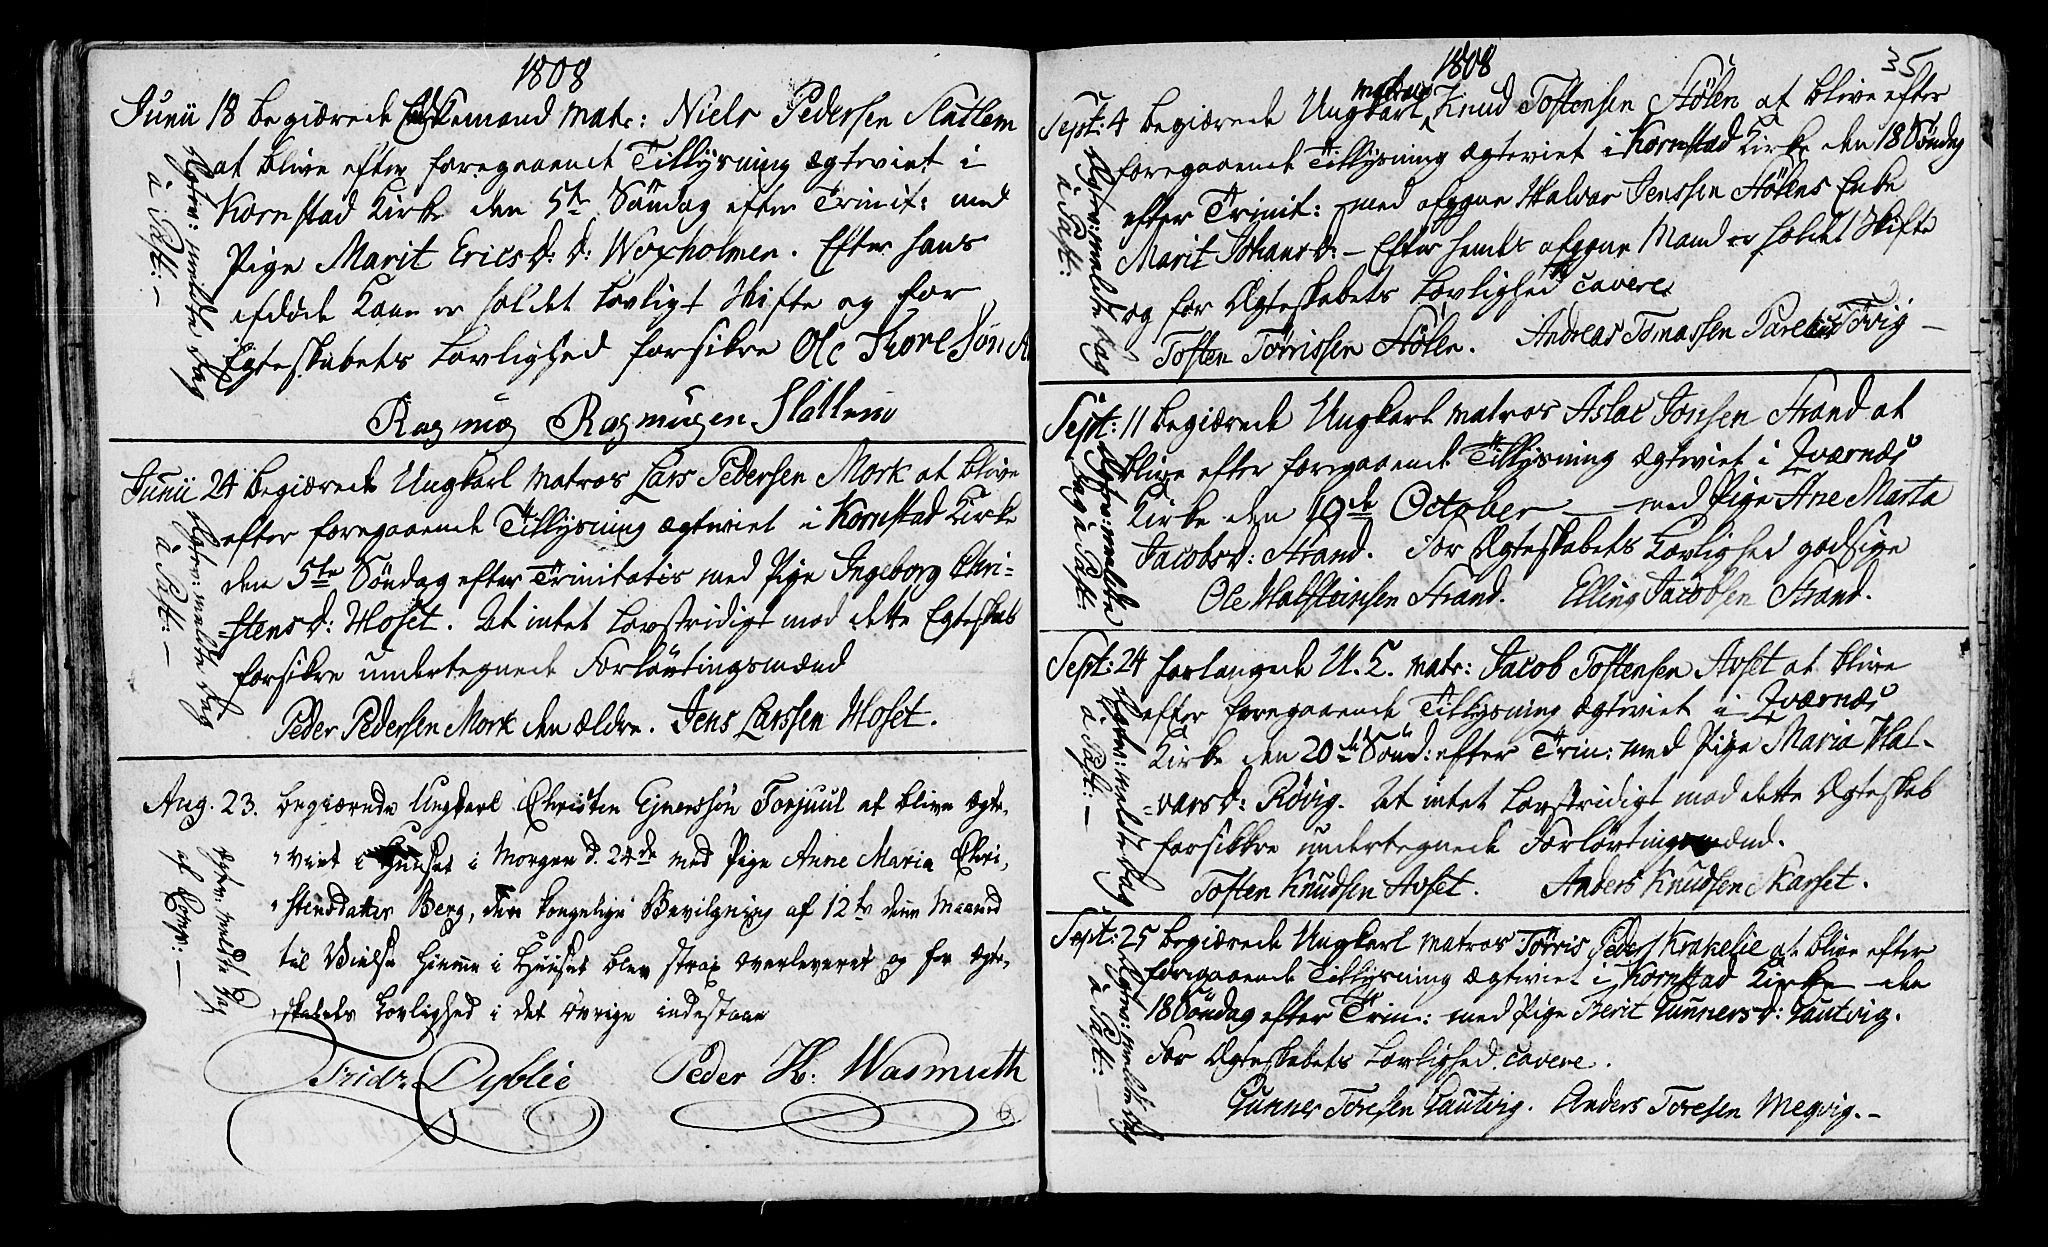 1808
Junii 18 begiærede Enkemand matr: Niels Pedersen Slatlem
at blive efter foregaaende Tillysning ægteviet i
Kornstad Kirke den 5te Søndag efter Trinit: med
Pige Marit Ericsd: d: Woxholmen. Efter hans
afdøde Kone er holdet Lovligt Skifte og for
Egteskabets Lovlighed forsikre Ole Thore Søn
Rasmus Rasmusen Slatlem
Ægtev: meldte Dag
à Past: –
Junii 24 begiærede Ungkarl matros Lars Pedersen Mork at blive
efter foregaaende Tillysning ægteviet i Kornstad Kirke
den 5te Søndag efter Trinitatis med Pige Ingeborg Chri-
stensd: Hoset. At intet Lovstridigt mod dette Egteskab
forsikre undertegnede Forlovningsmænd
Peder Pedersen Mork den ældre. Jens Larssen Hoset.
Ægtev: meldte Dag
à Past: –
Aug. 23. begiærede Ungkarl Christen Ejnerssøn Torjuul at blive ægte-
viet i Huuset i Morgen d. 24de med Pige Anne Maria Chri-
stensdatter Berg, den kongelige Bevilgning af 12te denne Maaned
til Vielse hiemme i Huuset blev strax overleveret og for Ægte-
skabets Lovlighed i det øvrige indestaae
Fridr. Dyblie Peder H: Wasmuth
Ægtev: meldte Dag
af
1808
35
Sept: 4 begiærede Ungkarl matros Knud Tostensen Stølen at blive efter
foregaaende Tillysning ægteviet i Kornstad Kirke den 18 Søndag
efter Trinit: med afgane Halvar Jenssen Stølens Enke
Marit Johansd: – Efter hendes afgangne Mand er holdet Skifte
og for Ægteskabets Lovlighed cavere
Tosten Tørrissen Stølen. Andreas Tomassen
Ægtev: meldte Dag
à Past:
Sept: 11 begiærede Ungkarl matros Aslac Jonsen Strand at
blive efter foregaaende Tillysning ægteviet i Qværnæs
Kirke den 19de October – med Pige Ane Marta
Jacobsd: Strand. For Ægteskabets Lovlighed godsige
Ole Halsteinsen Strand. Elling Jacobsen Strand.
Ægtev: meldte
Dag à Past:
Sept: 24 forlangede U. K. matr: Jacob Tostensen Avset at blive
efter foregaaende Tillysning ægteviet i Qværnæs
Kirke den 20de Sønd: efter Trin: med Pige Maria Hal-
varsd: Røvig. At intet Lovstridigt mod dette Ægteskab
forsikkre undertegnede Forlovningsmænd.
Tosten Knudsen Avset. Anders Knudsen Skarset.
Ægtev: meldte Dag
à Past: –
Sept: 25 begiærede Ungkarl matros Tørris Peders Krakelie at blive efter
foregaaende Tillysning ægteviet i Kornstad Kirke den
18 Søndag efter Trin: med Pige Berit Gunnersd: Gautvig.
For Ægteskabets Lovlighed cavere.
Gunner Toresen Gautvig. Anders Toresen Megvig. –
Ægtev: meldte Dag
à Past: –